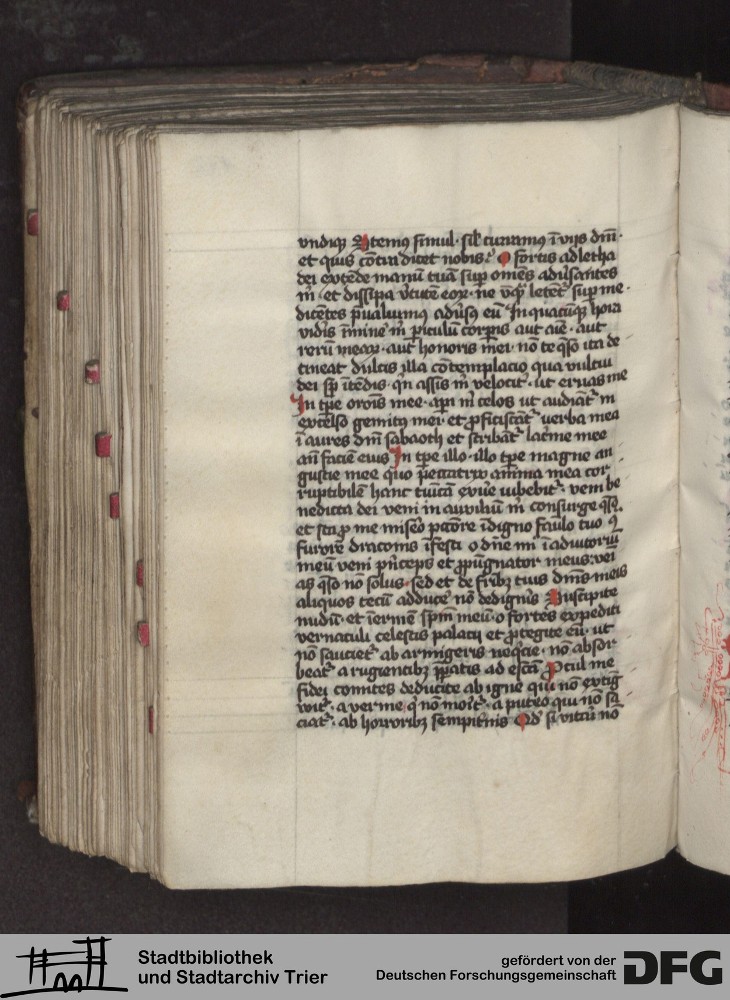 vndiqȝ Stemꝰ simul· sił curramꝰ ī vijs dn̄i·
et quis cōtra dicet nobis· O fortis adletha
dei extēde manū tuā sup̱ om̄es adūsantes
m̄· et dissipa v̓tutē eoꝝ· ne vq̄ȝ letent᷑ sup̱ me·
dicētes p̄ualuimꝰ adūsꝰ eū· In quacūqȝ hora
vidis īmine̓ m̄ p̱iculū corp̱is aut aīe· aut
rerū meaꝝ· aut honoris mei· nō te q̄so ita de
tineat dulcis illa cōtemplacio qua vultū
dei sp̱ ītēdis· qn̄ assis m̄ velocit᷑· ut eruas me
In tp̱e oroīs mee· ap̱i m̄ celos ut audiāt᷑ in
excelso gemitꝰ mei· et ꝓficiscāt᷑ verba mea
ī aures dn̄i sabaoth et scribāt᷑ lac̓me mee
an̄ faciē eius In tp̱e illo· illo tp̱e magne an
gustie mee quo peccatrix anima mea cor
ruptibilē hanc tunicā exue̓ iubebit᷑· veni be
nedicta dei veni in auxiliū m̄ consurge q̄so·
et sta ꝓ me misero pctōre īdigno faūlo tuo 9̓
furorē draconis īfesti o dn̄e mi ī adiutoriū
meū veni p̓nceps et ꝓpūgnator meus· vei
as q̄so nō solus· sed et de fr̄ibȝ tuis dn̄is meis
aliquos tecū adduce̓ nō dedignis Suscipite
nudū· et īermē sp̄m meū· o fortes expediti
vernaculi celestis palacij et ꝓtegite eū· ut
nō sauciet᷑ ab armigeris neq̓cie· nō absor
beat᷑ a rugientibȝ p̱p̱atis ad escā Procul me
fidei comites deducite ab igne qui nō extīg
wit᷑· a verme q̓ nō morit᷑· a puteo qui nō sa
ciat᷑· ab horroribȝ sempit̓nis Qd̓ si virtū nō
Stadtbibliothek
und Stadtarchiv Trier
gefördert von der
Deutschen Forschungsgemeinschaft
DFG